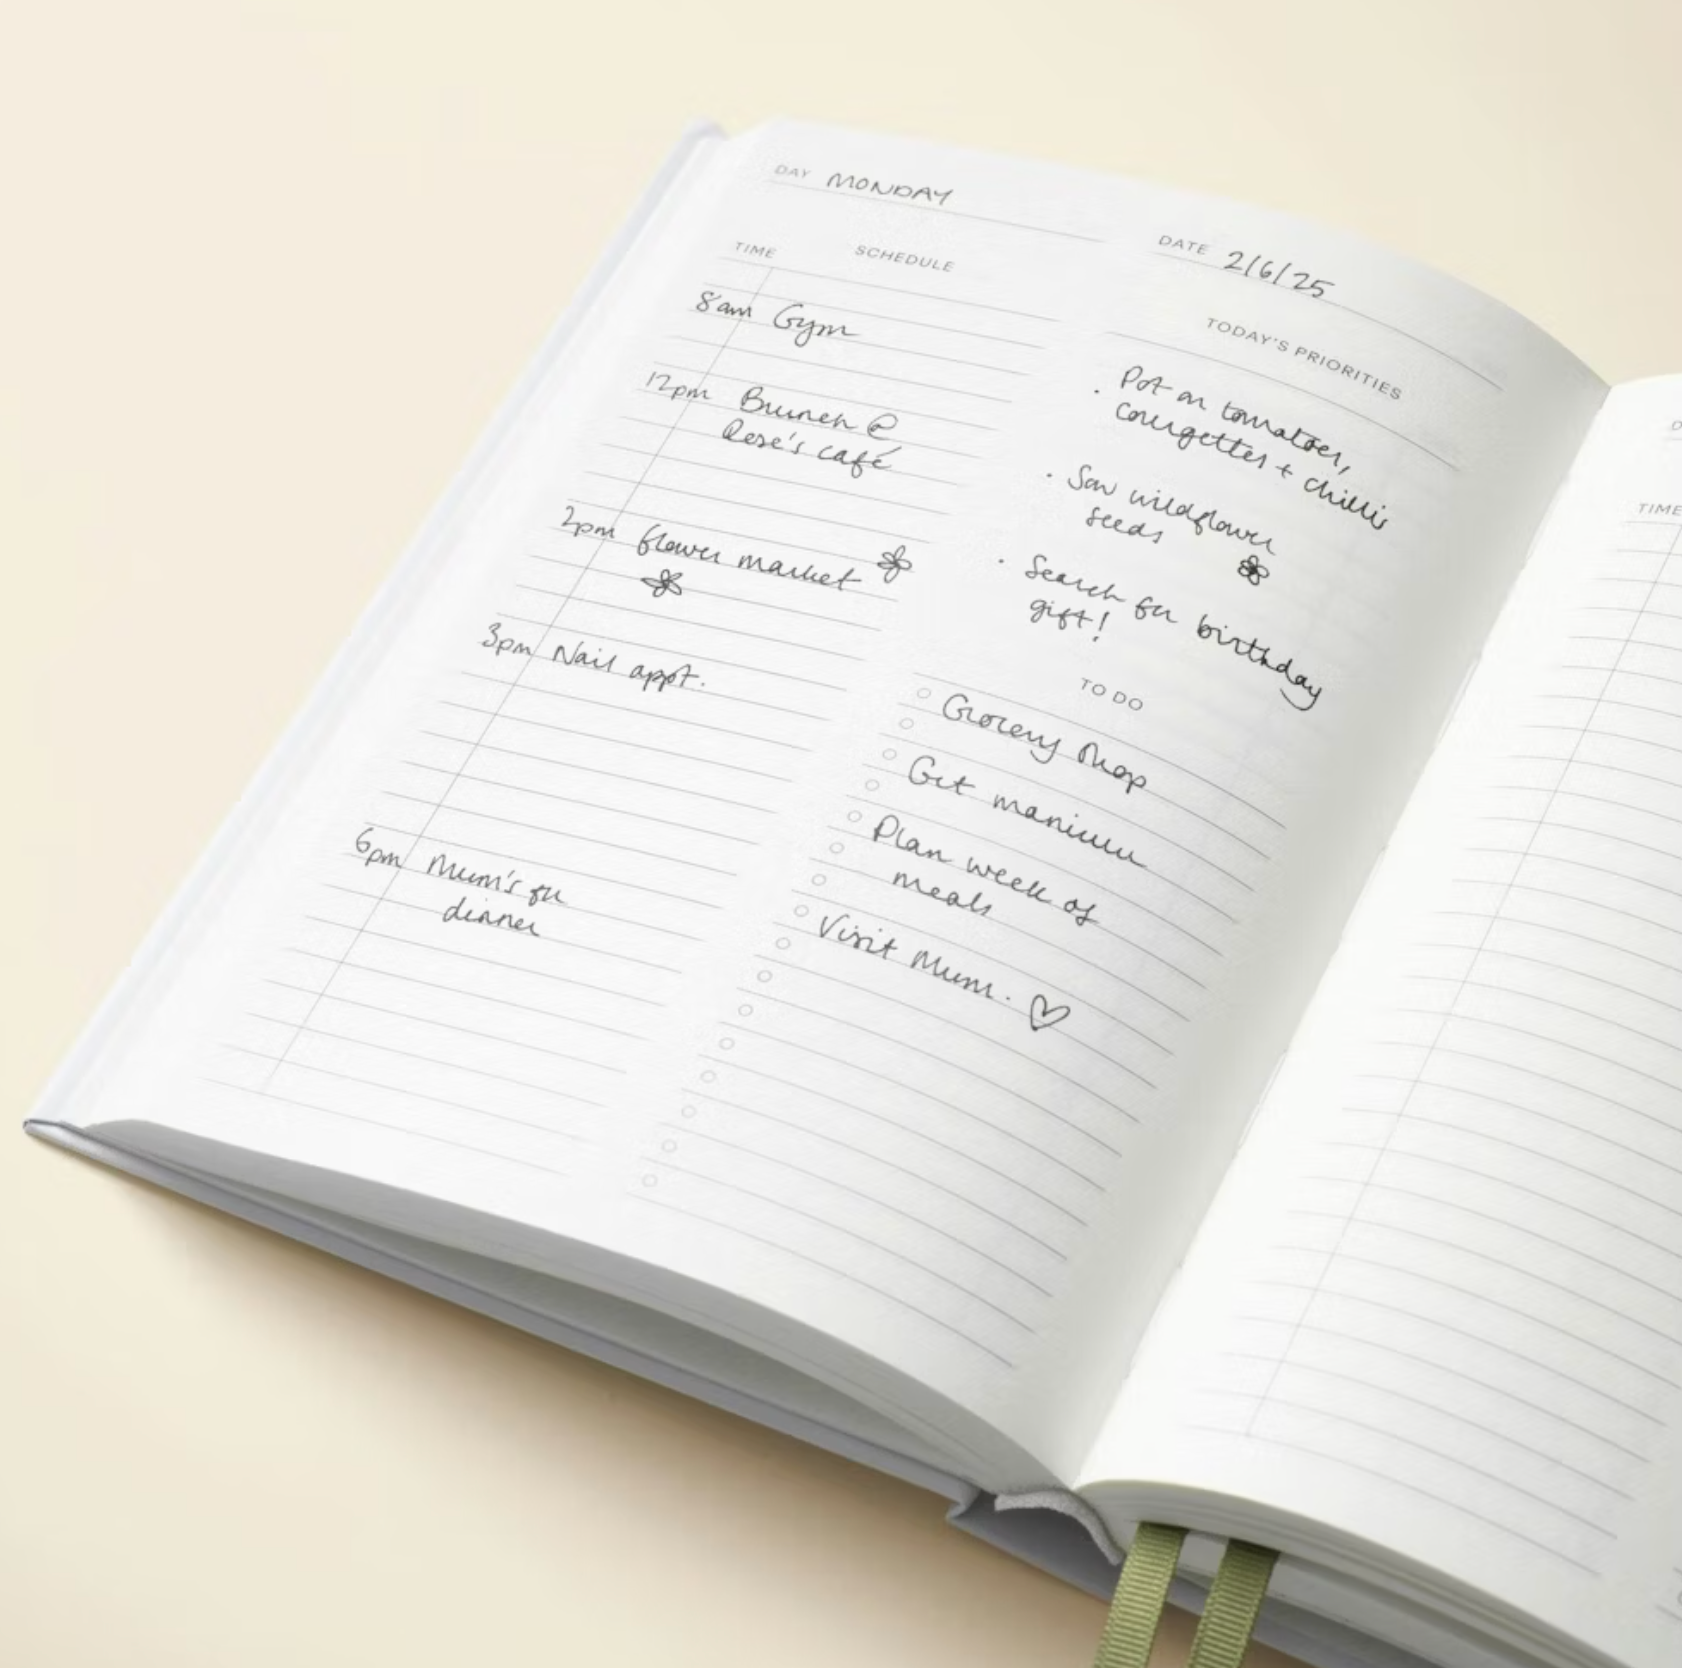 DAY MONDAY
DATE 2/6/25
TIME SCHEDULE
8am Gym
12pm Brunch @
Rose's café
2pm flower market
3pm Nail appt.
6pm Mum's for
dinner
TODAY'S PRIORITIES
· Pot on tomatoes,
courgettes + chillis
· Sow wildflower
seeds
· Search for birthday
gift!
TO DO
Grocery shop
Get manicure
Plan week of
meals
Visit Mum.
D
TIME